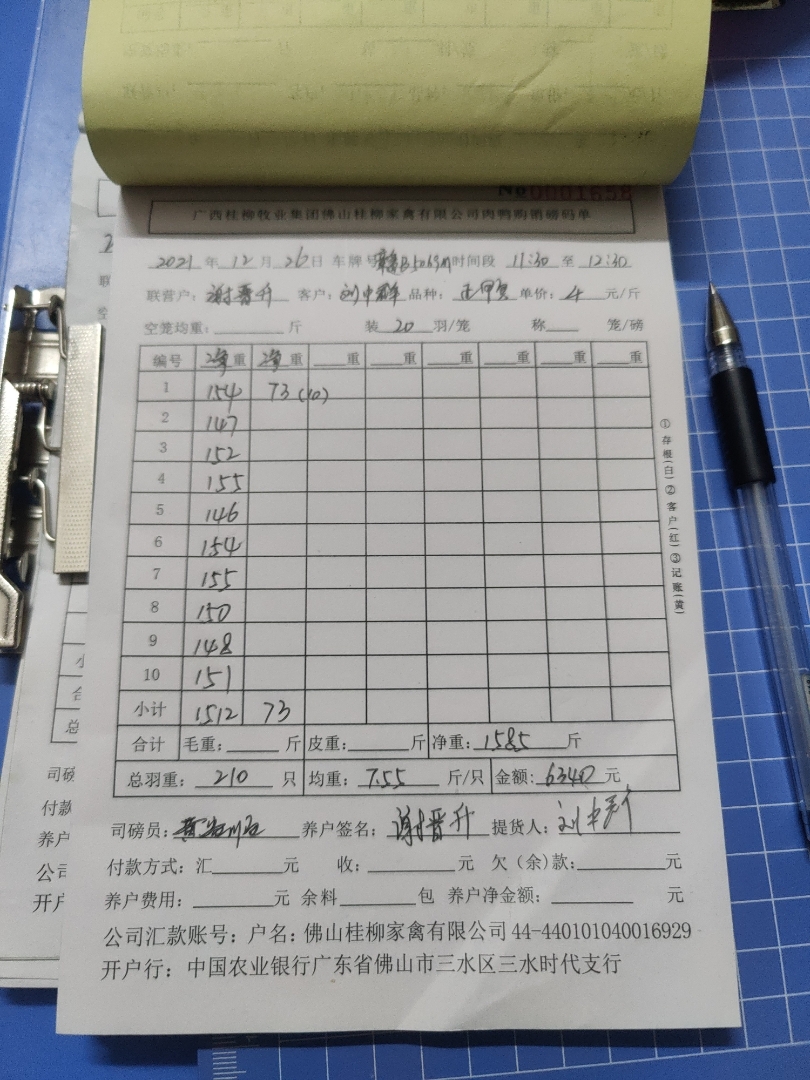 №0001658
广西桂柳牧业集团佛山桂柳家禽有限公司肉鸭购销磅码单
2021年12月26日 车牌号 时间段 11:30 至 12:30
联营户：谢晋升 客户：刘中群 品种： 单价：4 元/斤
空笼均重：______斤 装 20 羽/笼 称____笼/磅
编号 净重 净重 ____重 ____重 ____重 ____重 ____重 ____重
1 154 73(10)
2 147
3 152
4 155
5 146
6 154
7 155
8 150
9 148
10 151
小计 1512 73
合计 毛重：______斤 皮重：______斤 净重：1585斤
总羽重：210 只 均重：7.55 斤/只 金额：6340元
司磅员： 养户签名：谢晋升 提货人：
付款方式：汇______元 收：______元 欠（余）款：______元
养户费用：______元 余料______包 养户净金额：______元
公司汇款账号：户名：佛山桂柳家禽有限公司 44-440101040016929
开户行：中国农业银行广东省佛山市三水区三水时代支行
①存根(白)②客户(红)③记账(黄)
司磅
付款
养户
公司
开户